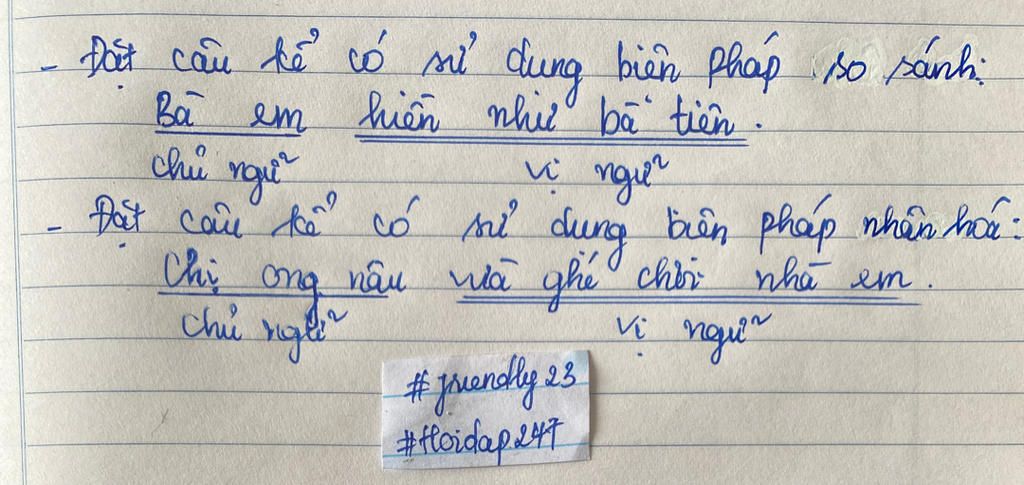 - Đặt câu kể có sử dụng biện pháp so sánh:
Bà em hiền như bà tiên.
chủ ngữ vị ngữ
- Đặt câu kể có sử dụng biện pháp nhân hoá:
Chị ong nâu vừa ghé chơi nhà em.
chủ ngữ vị ngữ
#friendly23
#Hoidap247